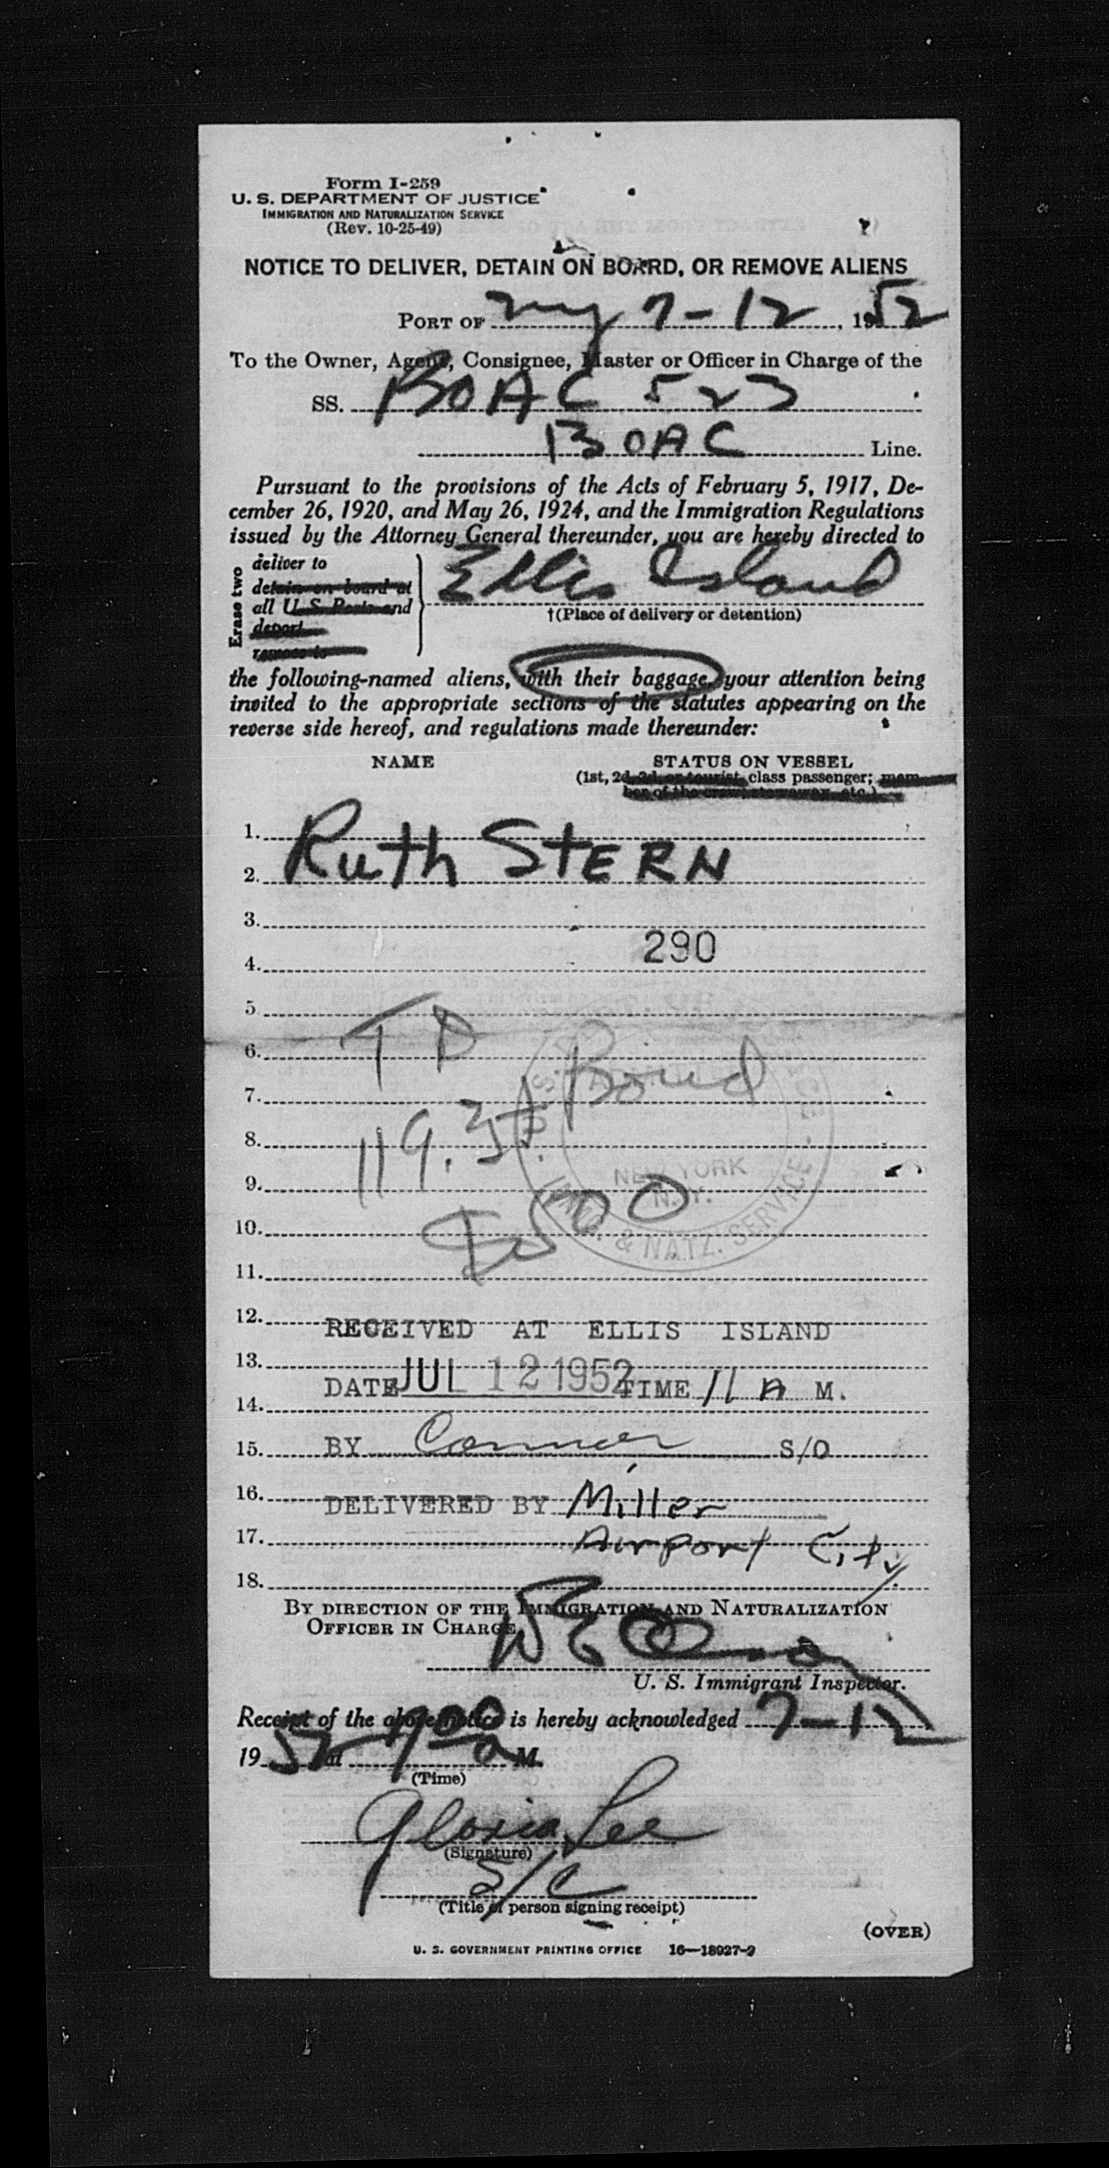 Form I-259
U. S. DEPARTMENT OF JUSTICE
IMMIGRATION AND NATURALIZATION SERVICE
(Rev. 10-25-49)
NOTICE TO DELIVER, DETAIN ON BOARD, OR REMOVE ALIENS
PORT OF ny 7-12, 1952
To the Owner, Agent, Consignee, Master or Officer in Charge of the
SS. BOAC 523
BOAC Line.
Pursuant to the provisions of the Acts of February 5, 1917, De-
cember 26, 1920, and May 26, 1924, and the Immigration Regulations
issued by the Attorney General thereunder, you are hereby directed to
Erase two
deliver to
detain on board at
all U. S. Ports and
deport
remove to
Ellis Island
†(Place of delivery or detention)
the following-named aliens, with their baggage, your attention being
invited to the appropriate sections of the statutes appearing on the
reverse side hereof, and regulations made thereunder:
NAME STATUS ON VESSEL
(1st, 2d, 3d, or tourist class passenger; mem-
ber of the crew, stowaway, etc.)
1.
2. Ruth STERN
3.
4. 290
5.
6. TD Bond
7.
8. 119.
9.
10. 500
11.
U.S. IMMG. & NATZ. SERVICE
NEW YORK
N.Y.
12. RECEIVED AT ELLIS ISLAND
13.
DATE JUL 12 1952 TIME 11 A M.
14.
15. BY Connor S/O
16. DELIVERED BY Miller
17. Airport City
18.
BY DIRECTION OF THE IMMIGRATION AND NATURALIZATION
OFFICER IN CHARGE
U. S. Immigrant Inspector.
Receipt of the above notice is hereby acknowledged 7-12
1952 at M.
(Time)
Gloria Lee
(Signature)
S/C
(Title of person signing receipt)
(OVER)
U. S. GOVERNMENT PRINTING OFFICE 16—18927-2